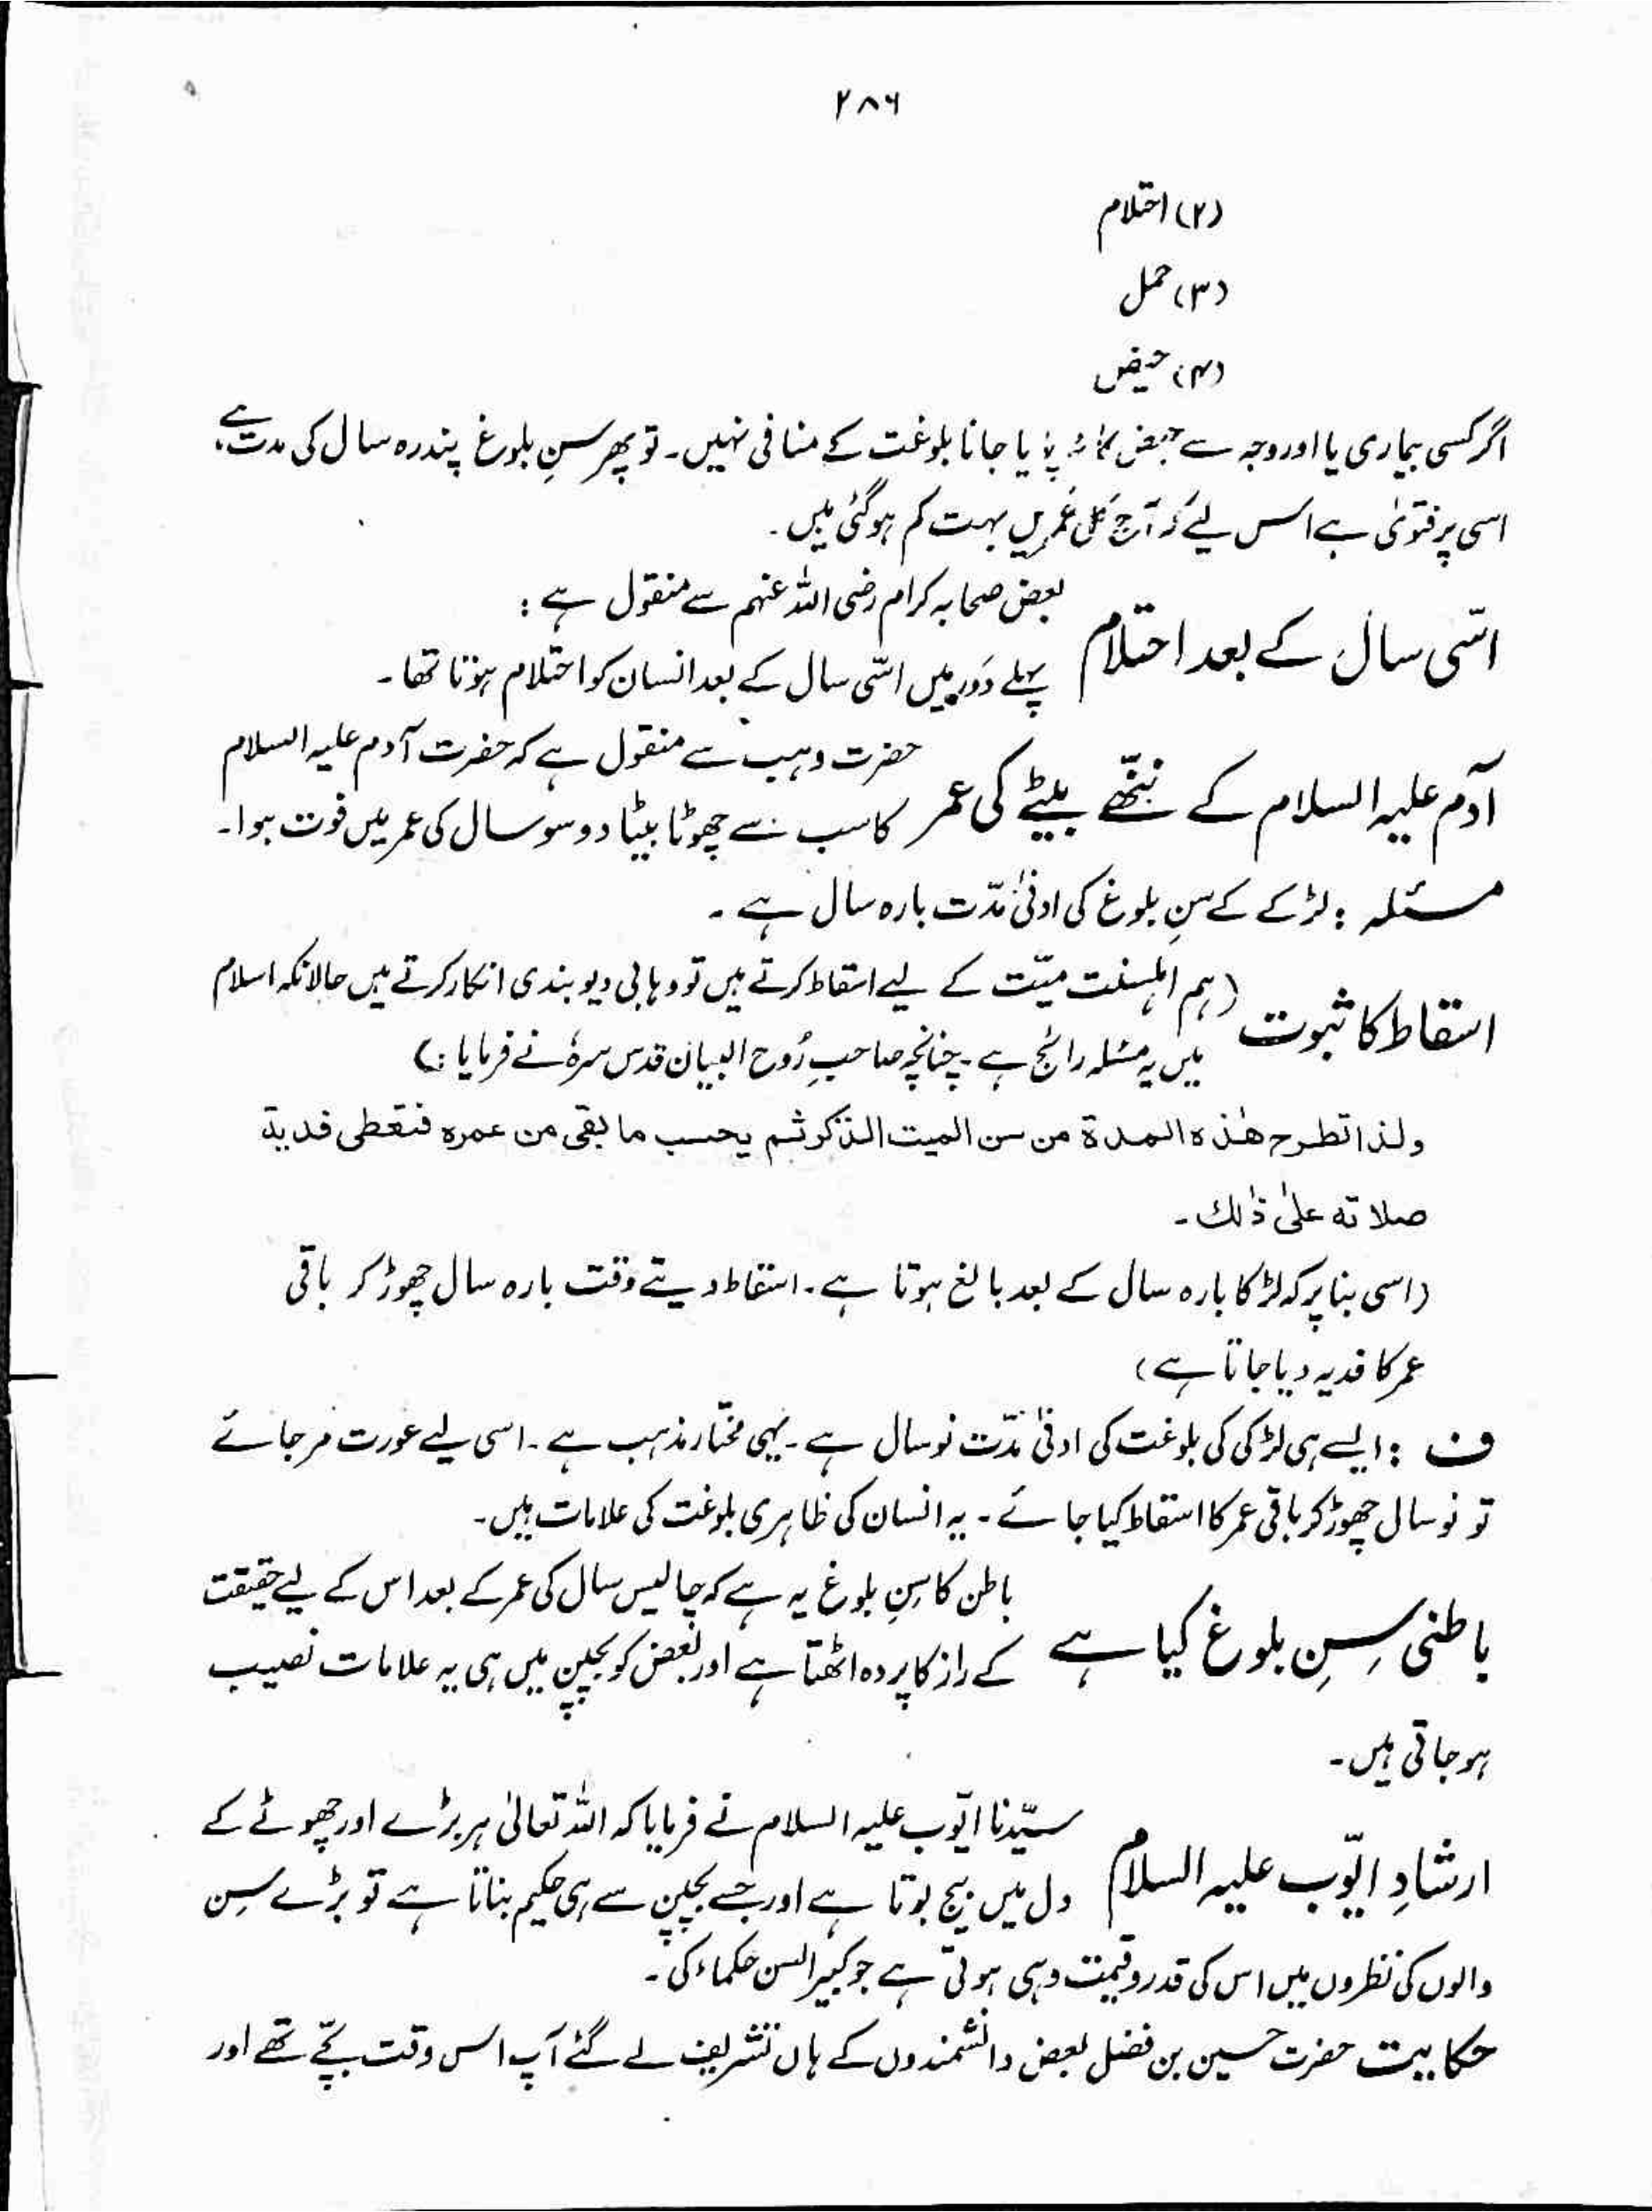 ۲۸۶
(۲) احتلام
(۳) حمل
(۴) حیض
اگر کسی بیماری یا اور وجہ سے حیض کا نہ پایا جانا بلوغت کے منافی نہیں۔ تو پھر سنِ بلوغ پندرہ سال کی مدت ہے،
اسی پر فتویٰ ہے اس لیے کہ آج کل عُمریں بہت کم ہوگئی ہیں۔
اسّی سال کے بعد احتلام بعض صحابہ کرام رضی اللہ عنہم سے منقول ہے :
پہلے دَور میں اسّی سال کے بعد انسان کو احتلام ہوتا تھا۔
آدم علیہ السلام کے ننھّے بیٹے کی عمر حضرت وہب سے منقول ہے کہ حضرت آدم علیہ السلام
کا سب سے چھوٹا بیٹا دو سو سال کی عمر میں فوت ہوا۔
مسئلہ : لڑکے کے سنِ بلوغ کی ادنیٰ مدّت بارہ سال ہے ۔
اسقاط کا ثبوت (ہم اہلسنت میّت کے لیے اسقاط کرتے ہیں تو وہابی دیوبندی انکار کرتے ہیں حالانکہ اسلام
میں یہ مسئلہ رائج ہے ۔ چنانچہ صاحبِ رُوح البیان قدس سرہٗ نے فرمایا :)
ولذا تطرح هٰذه المدة من سن الميت الذكر ثم يحسب ما بقى من عمره فتعطى فدية
صلاته علىٰ ذٰلك ۔
(اسی بنا پر کہ لڑکا بارہ سال کے بعد بالغ ہوتا ہے ۔ اسقاط دیتے وقت بارہ سال چھوڑ کر باقی
عمر کا فدیہ دیا جاتا ہے)
ف : ایسے ہی لڑکی کی بلوغت کی ادنیٰ مدّت نو سال ہے ۔ یہی مختار مذہب ہے ۔ اسی لیے عورت مر جائے
تو نو سال چھوڑ کر باقی عمر کا اسقاط کیا جائے ۔ یہ انسان کی ظاہری بلوغت کی علامات ہیں۔
باطنی سنِ بلوغ کیا ہے باطن کا سنِ بلوغ یہ ہے کہ چالیس سال کی عمر کے بعد اس کے لیے حقیقت
کے راز کا پردہ اٹھتا ہے اور بعض کو بچپن میں ہی یہ علامات نصیب
ہو جاتی ہیں۔
ارشادِ ایّوب علیہ السلام سیّدنا ایّوب علیہ السلام نے فرمایا کہ اللہ تعالیٰ ہر بڑے اور چھوٹے کے
دل میں بیج بوتا ہے اور جسے بچپن سے ہی حکیم بناتا ہے تو بڑے سِن
والوں کی نظروں میں اس کی قدر و قیمت وہی ہوتی ہے جو کبیر السن حکماء کی ۔
حکایت حضرت حسین بن فضل بعض دانشمندوں کے ہاں تشریف لے گئے آپ اس وقت بچّے تھے اور